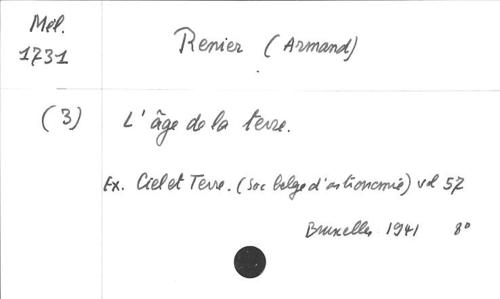 Mél.
1731
Renier (Armand)
(3) L'âge de la terre.
Ex. Ciel et Terre. (Soc belge d'astronomie) vol 57
Bruxelles 1941 8°